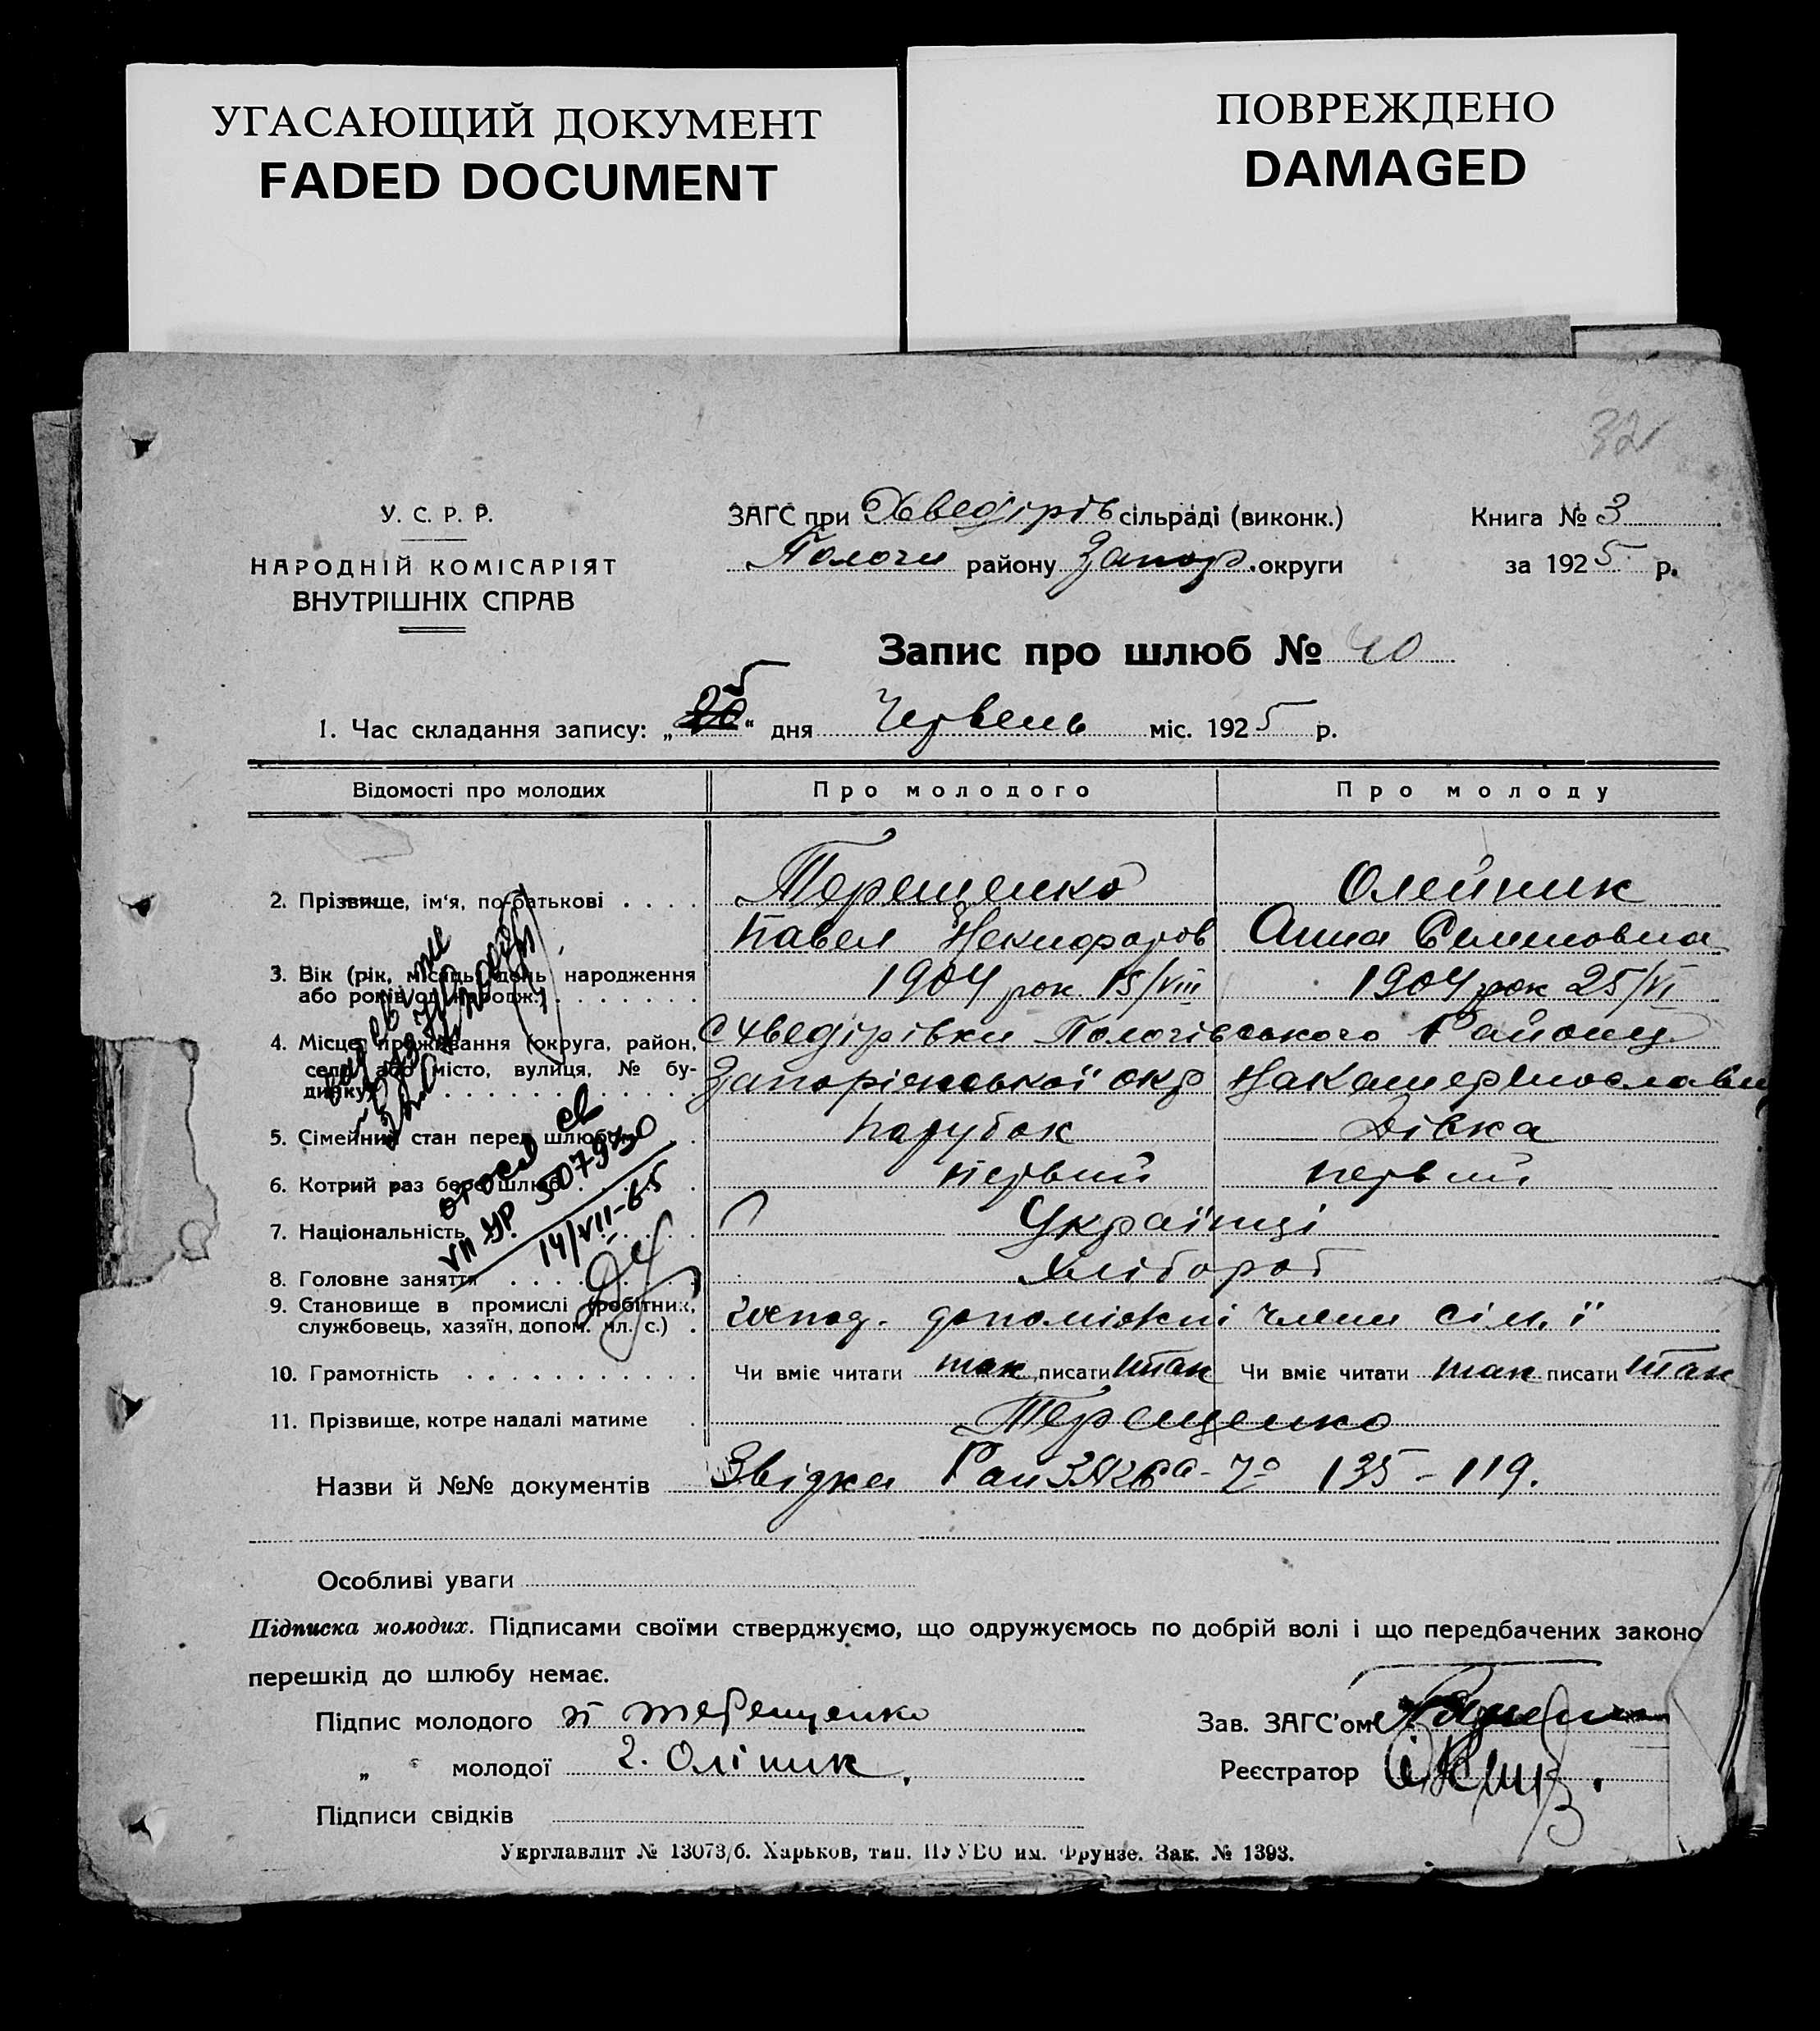 УГАСАЮЩИЙ ДОКУМЕНТ
FADED DOCUMENT
ПОВРЕЖДЕНО
DAMAGED
32
У. С. Р. Р.
НАРОДНІЙ КОМІСАРІЯТ
ВНУТРІШНІХ СПРАВ
ЗАГС при Хведірів сільраді (виконк.)
Пологи району Запор. округи
Книга № 3
за 1925 р.
Запис про шлюб № 40
1. Час складання запису: „25“ дня Червень міс. 1925 р.
Відомості про молодих Про молодого Про молоду
2. Прізвище, ім'я, по-батькові . . . . Терещенко Олейник
Павел Некифоров Анна Семеновна
3. Вік (рік, місяць, день народження
або років од народж.) . . . . . . . 1904 рок 15/VIII 1904 рок 25/VI
4. Місце проживання (округа, район, с Хведірівки Пологівського Району
село або місто, вулиця, № бу-
динку) . . . . . . . . . . . . Запоріжської окр
5. Сімейний стан перед шлюбом . Парубок Дівка
6. Котрий раз бере шлюб . . . . . первий первий
7. Національність . . . . . . . Українці
8. Головне заняття . . . . . . . Хлібороб
9. Становище в промислі (робітник,
службовець, хазяїн, допом. чл. с.) . допоміжні члени сім'ї
10. Грамотність . . . . . . . . . . . Чи вміє читати так писати так Чи вміє читати так писати так
11. Прізвище, котре надалі матиме . Терещенко
VII УР 507930
14/VII-65
Назви й №№ документів Звідки 135-119.
Особливі уваги
Підписка молодих. Підписами своїми стверджуємо, що одружуємось по добрій волі і що передбачених законо
перешкід до шлюбу немає.
Підпис молодого П Терещенко
„ молодої Г. Оліник
Підписи свідків
Зав. ЗАГС'ом
Реєстратор
Укрглавлит № 13073/б. Харьков, тип. ПУУВО им. Фрунзе. Зак. № 1393.